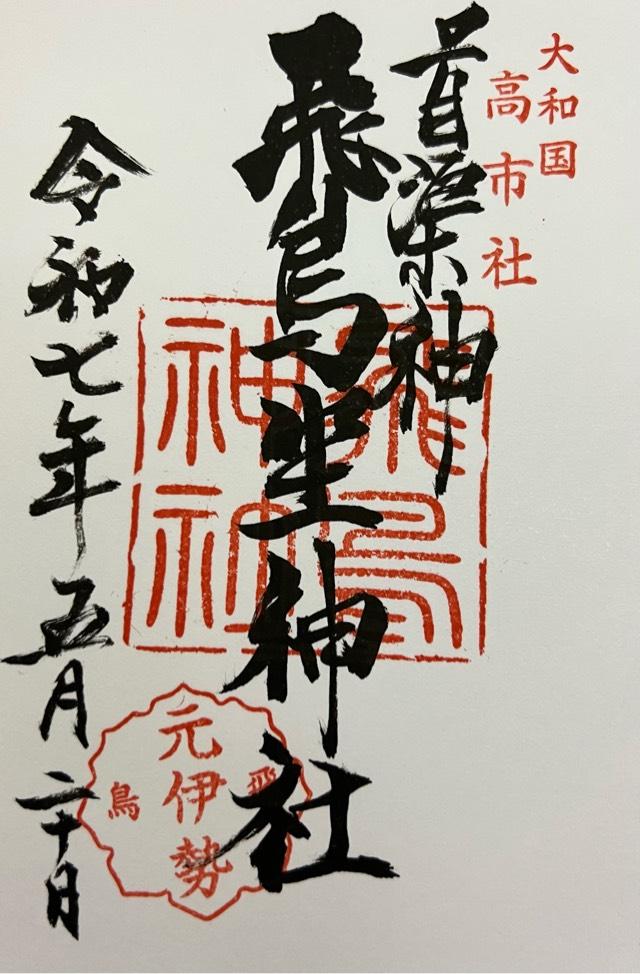 大和国
高市社
首渠神
飛鳥坐神社
飛鳥
神社
元伊勢
飛鳥
令和七年五月二十日